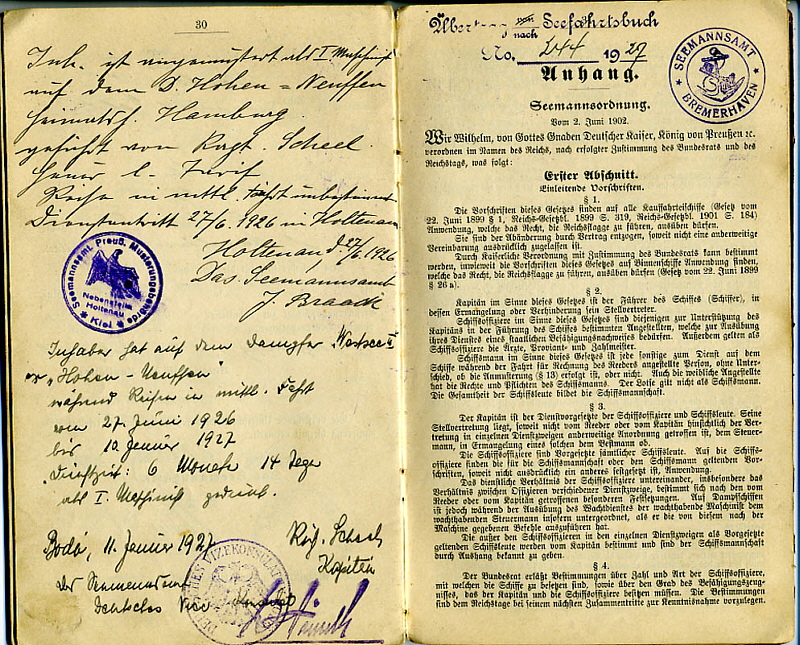 30
Inh. ist angemustert als I. Maschinist
auf dem D. Hohen-Neuffen
Heimatsh. Hamburg.
geführt von Kapt. Scheel
Heuer l. Tarif
Reise in mittl. Fahrt unbestimmt
Dienstantritt 27/6. 1926 in Holtenau
Holtenau d. 27/6. 1926
Das Seemannsamt
J. Braack
Seemannsamt Preuß. Musterungsbehörde
Nebenstelle
Holtenau
Kiel
Inhaber hat auf dem Dampfer
"Hohen-Neuffen"
während Reisen in mittl. Fahrt
vom 27. Juni 1926
bis 10. Januar 1927
Dienstzeit: 6 Monate 14 Tage
als I. Maschinist gedient.
Bodö, 11. Januar 1927
Kapitän
Das Seemannsamt
Deutsches Vize-Konsulat
Seefahrtsbuch
nach
No. 244 1927
SEEMANNSAMT
BREMERHAVEN
Anhang.
Seemannsordnung.
Vom 2. Juni 1902.
Wir Wilhelm, von Gottes Gnaden Deutscher Kaiser, König von Preußen ꝛc.
verordnen im Namen des Reichs, nach erfolgter Zustimmung des Bundesrats und des
Reichstags, was folgt:
Erster Abschnitt.
Einleitende Vorschriften.
§ 1.
Die Vorschriften dieses Gesetzes finden auf alle Kauffahrteischiffe (Gesetz vom
22. Juni 1899 § 1, Reichs-Gesetzbl. 1899 S. 319, Reichs-Gesetzbl. 1901 S. 184)
Anwendung, welche das Recht, die Reichsflagge zu führen, ausüben dürfen.
Sie sind der Abänderung durch Vertrag entzogen, soweit nicht eine anderweitige
Vereinbarung ausdrücklich zugelassen ist.
Durch Kaiserliche Verordnung mit Zustimmung des Bundesrats kann bestimmt
werden, inwieweit die Vorschriften dieses Gesetzes auf Binnenschiffe Anwendung finden,
welche das Recht, die Reichsflagge zu führen, ausüben dürfen (Gesetz vom 22. Juni 1899
§ 26 a).
§ 2.
Kapitän im Sinne dieses Gesetzes ist der Führer des Schiffes (Schiffer), in
dessen Ermangelung oder Verhinderung sein Stellvertreter.
Schiffsoffiziere im Sinne dieses Gesetzes sind diejenigen zur Unterstützung des
Kapitäns in der Führung des Schiffes bestimmten Angestellten, welche zur Ausübung
ihres Dienstes eines staatlichen Befähigungsnachweises bedürfen. Außerdem gelten als
Schiffsoffiziere die Ärzte, Proviant- und Zahlmeister.
Schiffsmann im Sinne dieses Gesetzes ist jede sonstige zum Dienst auf dem
Schiffe während der Fahrt für Rechnung des Reeders angestellte Person, ohne Unter-
schied, ob die Anmusterung (§ 13) erfolgt ist, oder nicht. Auch die weibliche Angestellte
hat die Rechte und Pflichten des Schiffsmanns. Der Lotse gilt nicht als Schiffsmann.
Die Gesamtheit der Schiffsleute bildet die Schiffsmannschaft.
§ 3.
Der Kapitän ist der Dienstvorgesetzte der Schiffsoffiziere und Schiffsleute. Seine
Stellvertretung liegt, soweit nicht vom Reeder oder vom Kapitän hinsichtlich der Ver-
tretung in einzelnen Dienstzweigen anderweitige Anordnung getroffen ist, dem Steuer-
mann, in Ermangelung eines solchen dem Bestmann ob.
Die Schiffsoffiziere sind Vorgesetzte sämtlicher Schiffsleute. Auf die Schiffs-
offiziere finden die für die Schiffsmannschaft oder den Schiffsmann geltenden Vor-
schriften, soweit nicht ausdrücklich ein anderes festgesetzt ist, Anwendung.
Das dienstliche Verhältnis der Schiffsoffiziere untereinander, insbesondere das
Verhältnis zwischen Offizieren verschiedener Dienstzweige, bestimmt sich nach den vom
Reeder oder vom Kapitän getroffenen besonderen Festsetzungen. Auf Dampfschiffen
ist jedoch während der Ausübung des Wachdienstes der wachthabende Maschinist dem
wachthabenden Steuermann insofern untergeordnet, als er die von diesem nach der
Maschine gegebenen Befehle auszuführen hat.
Die außer den Schiffsoffizieren in den einzelnen Dienstzweigen als Vorgesetzte
geltenden Schiffsleute werden vom Kapitän bestimmt und sind der Schiffsmannschaft
durch Aushang bekannt zu geben.
§ 4.
Der Bundesrat erläßt Bestimmungen über Zahl und Art der Schiffsoffiziere,
mit welchen die Schiffe zu besetzen sind, sowie über den Grad des Befähigungszeug-
nisses, das der Kapitän und die Schiffsoffiziere besitzen müssen. Die Bestimmungen
sind dem Reichstage bei seinem nächsten Zusammentritte zur Kenntnisnahme vorzulegen.